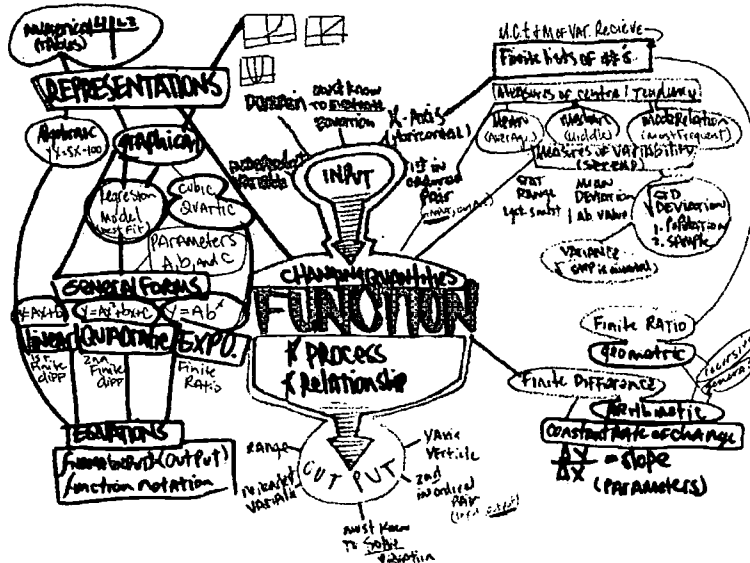 Numerical
(tables)
REPRESENTATIONS
Algebraic
Graphical
Regression
Model
(Best Fit)
Cubic
Quartic
Parameters
A, b, and C
GENERAL FORMS
y=Ax+b
y=Ax²+bx+c
y=Ab^x
linear
QUADRATIC
EXPO.
1st
Finite
diff
2nd
Finite
diff
Finite
Ratio
EQUATIONS
(OUTPUT)
function notation
DOMAIN
must know
to
equation
X-Axis
(Horizontal)
Variable
INPUT
1st in
ordered
pair
CHANGING QUANTITIES
FUNCTION
* PROCESS
* Relationship
OUTPUT
range
Variable
Verticle
2nd
in ordered
Pair
must know
to Solve
equation
M.C.T & M of VAR. Recieve
Finite lists of #'s
Measures of Central Tendency
Mean
(Average)
Median
(Middle)
Mode
(most frequent)
Measures of Variability
(spread)
STAT
RANGE
MEAN
DEVIATION
Ab. Value
STD
DEVIATION
1. Population
2. Sample
VARIANCE
Finite RATIO
Geometric
Finite Difference
Arithmetic
Constant Rate of change
ΔY
ΔX
= slope
(PARAMETERS)